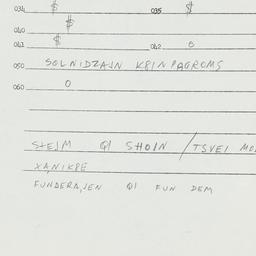 034 $ 035 $
040 $
041 $ 042 0
050 SOLNIDZAJN KBIN PAGROMS
060 0
STEJM QI SHOIN / TSVEI
XA,NIKPE
FUNDERA,JEN QI FUN DEM